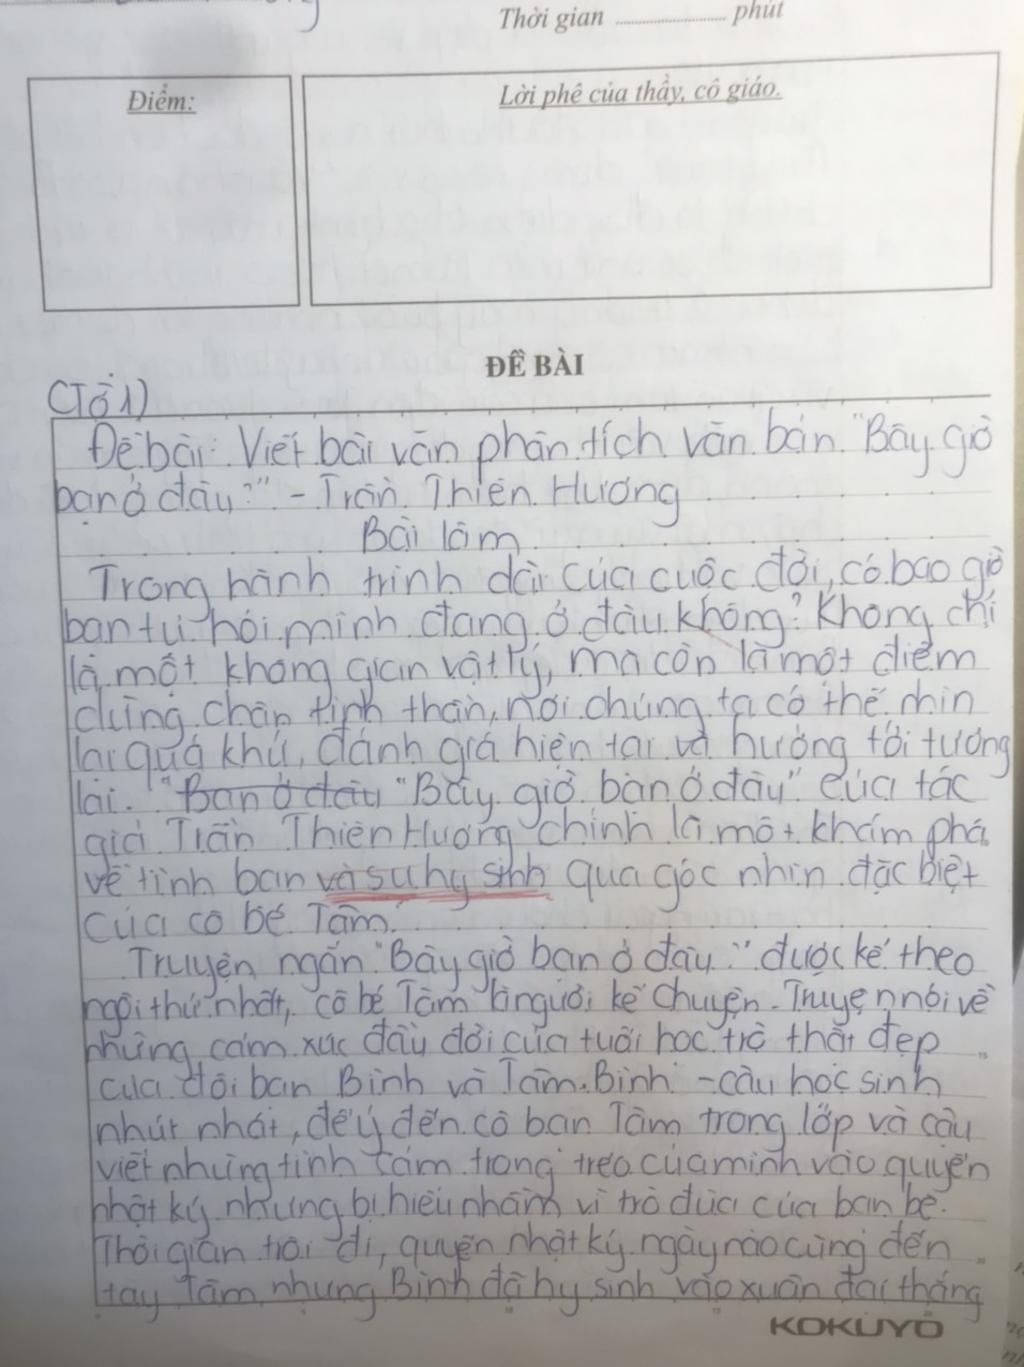 Thời gian .................... phút
Điểm:
Lời phê của thầy, cô giáo.
ĐỀ BÀI
(Tổ 1)
Đề bài: Viết bài văn phân tích văn bản "Bây giờ
bạn ở đâu?" - Trần Thiên Hương
Bài làm
Trong hành trình dài của cuộc đời, có bao giờ
bạn tự hỏi mình đang ở đâu không? Không chỉ
là một không gian vật lý, mà còn là một điểm
dừng chân tinh thần, nơi chúng ta có thể nhìn
lại quá khứ, đánh giá hiện tại và hướng tới tương
lai. "Bạn ở đâu "Bây giờ bạn ở đâu" của tác
giả Trần Thiên Hương chính là một khám phá
về tình bạn và sự hy sinh qua góc nhìn đặc biệt
của cô bé Tâm.
Truyện ngắn "Bây giờ bạn ở đâu" được kể theo
ngôi thứ nhất, cô bé Tâm là người kể chuyện. Truyện nói về
những cảm xúc đầu đời của tuổi học trò thật đẹp
của đôi bạn Bình và Tâm. Bình - cậu học sinh
nhút nhát, để ý đến cô bạn Tâm trong lớp và cậu
viết những tình cảm trong trẻo của mình vào quyển
nhật ký nhưng bị hiểu nhầm vì trò đùa của bạn bè.
Thời gian trôi đi, quyển nhật ký ngày nào cũng đến
tay Tâm nhưng Bình đã hy sinh vào xuân đại thắng
KOKUYO